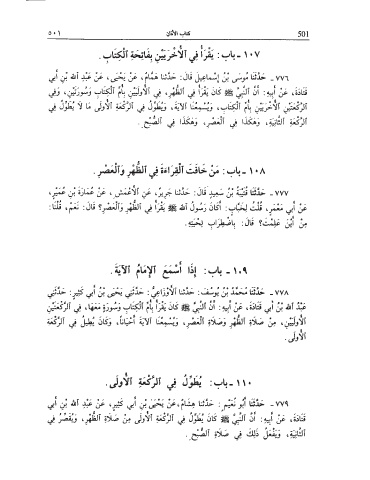 ٥٠١ كتاب الأذان 501
١٠٧ - باب: يَقْرَأُ فِي الأُخْرَيَيْنِ بِفَاتِحَةِ الْكِتَابِ.
٧٧٦ - حَدَّثَنَا مُوسَى بْنُ إِسْماعِيلَ قَالَ: حَدَّثَنَا هَمَّامٌ، عَنْ يَحْيَى، عَنْ عَبْدِ اللهِ بْنِ أَبِي
قَتَادَةَ، عَنْ أَبِيهِ: أَنَّ النَّبِيَّ ﷺ كَانَ يَقْرَأُ فِي الظُّهْرِ، فِي الأُولَيَيْنِ بِأُمِّ الْكِتَابِ وَسُورَتَيْنِ، وَفِي
الرَّكْعَتَيْنِ الأُخْرَيَيْنِ بِأُمِّ الْكِتَابِ، وَيُسْمِعُنَا الآيَةَ، وَيُطَوِّلُ فِي الرَّكْعَةِ الأُولَى مَا لَا يُطَوِّلُ فِي
الرَّكْعَةِ الثَّانِيَةِ، وَهَكَذَا فِي الْعَصْرِ، وَهَكَذَا فِي الصُّبْحِ.
١٠٨ - باب: مَنْ خَافَتَ الْقِرَاءَةَ فِي الظُّهْرِ وَالْعَصْرِ.
٧٧٧ - حَدَّثَنَا قُتَيْبَةُ بْنُ سَعِيدٍ قَالَ: حَدَّثَنَا جَرِيرٌ، عَنِ الأَعْمَشِ، عَنْ عُمَارَةَ بْنِ عُمَيْرٍ،
عَنْ أَبِي مَعْمَرٍ، قُلْتُ لِخَبَّابٍ: أَكَانَ رَسُولُ اللهِ ﷺ يَقْرَأُ فِي الظُّهْرِ وَالْعَصْرِ؟ قَالَ: نَعَمْ، قُلْنَا:
مِنْ أَيْنَ عَلِمْتَ؟ قَالَ: بِاضْطِرَابِ لِحْيَتِهِ.
١٠٩ - باب: إِذَا أَسْمَعَ الإِمَامُ الآيَةَ.
٧٧٨ - حَدَّثَنَا مُحَمَّدُ بْنُ يُوسُفَ: حَدَّثَنَا الأَوْزَاعِيُّ: حَدَّثَنِي يَحْيَى بْنُ أَبِي كَثِيرٍ: حَدَّثَنِي
عَبْدُ اللهِ بْنُ أَبِي قَتَادَةَ، عَنْ أَبِيهِ: أَنَّ النَّبِيَّ ﷺ كَانَ يَقْرَأُ بِأُمِّ الْكِتَابِ وَسُورَةٍ مَعَهَا، فِي الرَّكْعَتَيْنِ
الأُولَيَيْنِ، مِنْ صَلَاةِ الظُّهْرِ وَصَلَاةِ الْعَصْرِ، وَيُسْمِعُنَا الآيَةَ أَحْيَانًا، وَكَانَ يُطِيلُ فِي الرَّكْعَةِ
الأُولَى.
١١٠ - باب: يُطَوِّلُ فِي الرَّكْعَةِ الأُولَى.
٧٧٩ - حَدَّثَنَا أَبُو نُعَيْمٍ: حَدَّثَنَا هِشَامٌ، عَنْ يَحْيَى بْنِ أَبِي كَثِيرٍ، عَنْ عَبْدِ اللهِ بْنِ أَبِي
قَتَادَةَ، عَنْ أَبِيهِ: أَنَّ النَّبِيَّ ﷺ كَانَ يُطَوِّلُ فِي الرَّكْعَةِ الأُولَى مِنْ صَلَاةِ الظُّهْرِ، وَيُقَصِّرُ فِي
الثَّانِيَةِ، وَيَفْعَلُ ذَلِكَ فِي صَلَاةِ الصُّبْحِ.